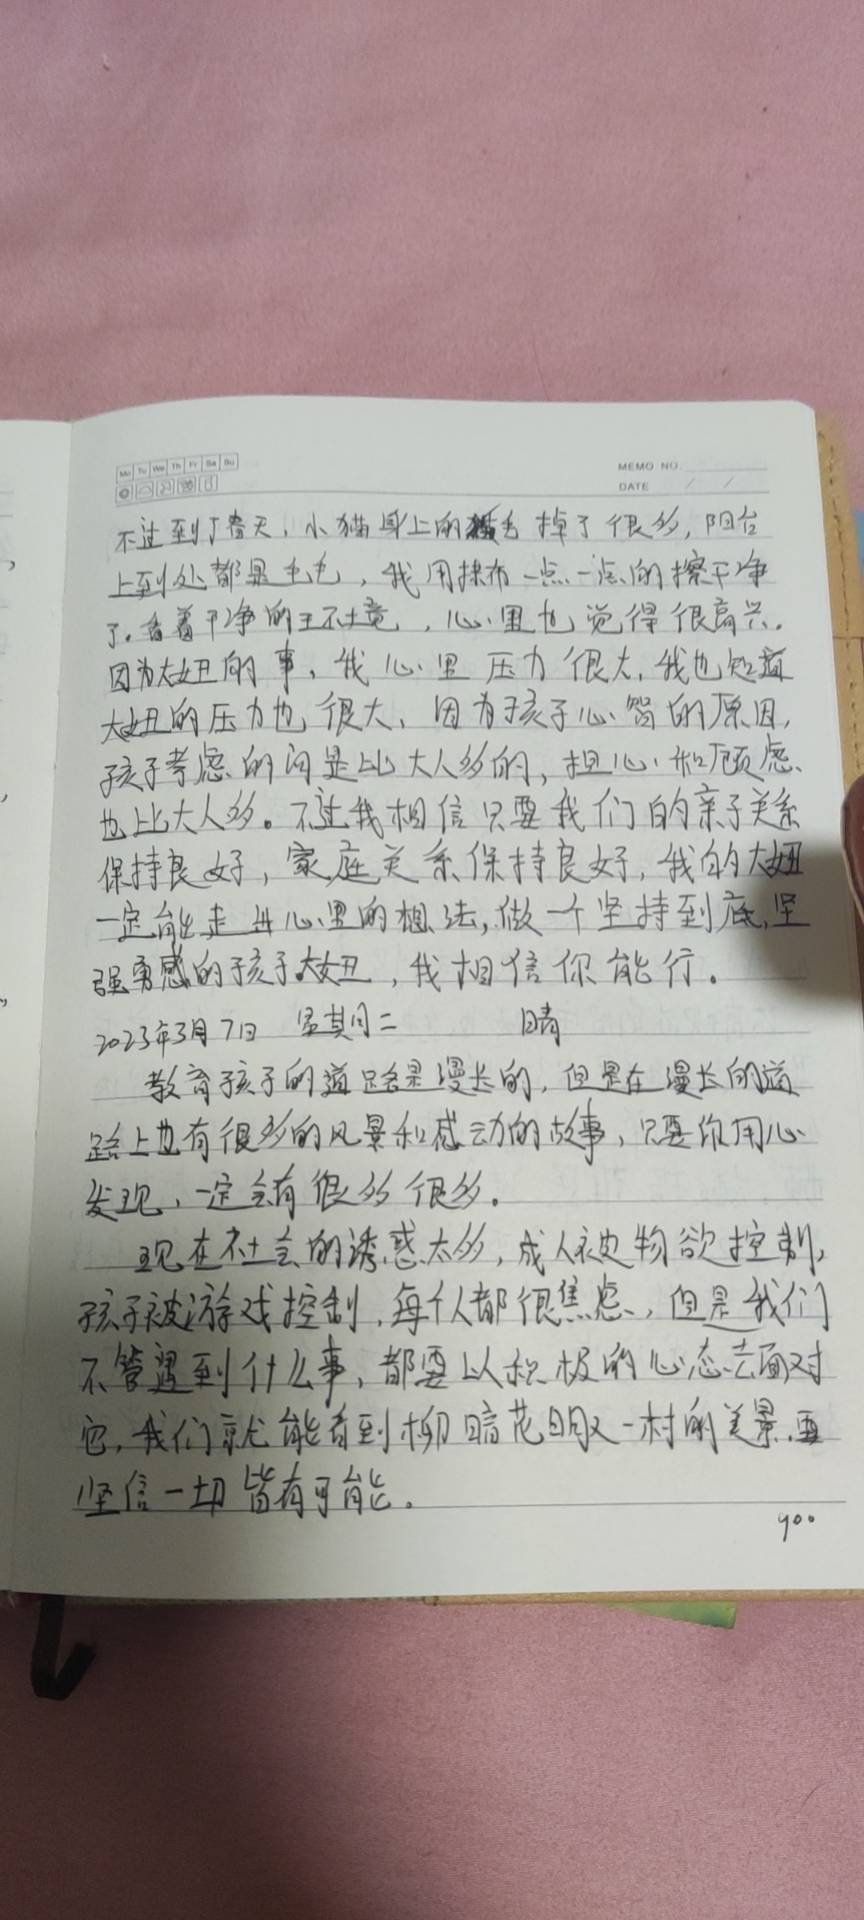 Mo Tu We Th Fr Sa Su
MEMO NO.
DATE / /
不过到了春天，小猫身上的毛掉了很多，阳台
上到处都是毛毛，我用抹布一点一点的擦干净
了。看着干净的环境，心里也觉得很高兴。
因为大妞的事，我心里压力很大，我也知道
大妞的压力也很大，因为孩子心智的原因，
孩子考虑的问是比大人多的，担心和顾虑
也比大人多。不过我相信只要我们的亲子关系
保持良好，家庭关系保持良好，我的大妞
一定能走进心里的想法，做一个坚持到底，坚
强勇感的孩子。大妞，我相信你能行。
2023年3月7日 星期二 晴
教育孩子的道路是漫长的，但是在漫长的道
路上也有很多的风景和感动的故事，只要你用心
发现，一定会有很多很多。
现在社会的诱惑太多，成人被物欲控制，
孩子被游戏控制，每个人都很焦虑，但是我们
不管遇到什么事，都要以积极的心态去面对
它，我们就能看到柳暗花明又一村的美景，要
坚信一切皆有可能。
900